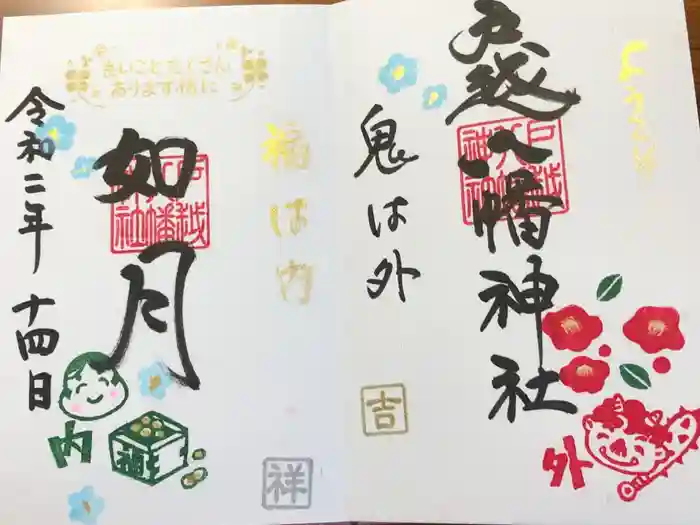 ようこそ
戸越八幡神社
戸越八幡神社
鬼は外
吉
外
よいことたくさん
ありますように
福は内
如月
戸越八幡神社
令和二年 十四日
内
福
祥